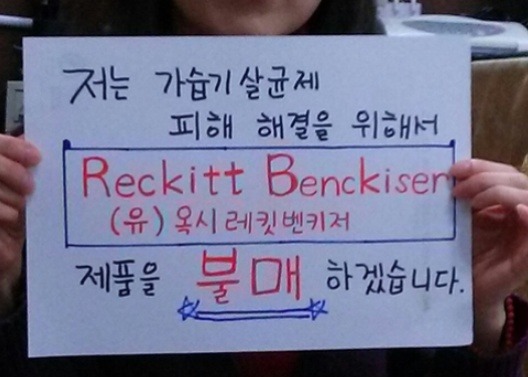 저는 가습기살균제
피해 해결을 위해서
Reckitt Benckiser
(유) 옥시레킷벤키저
제품을 불매 하겠습니다.